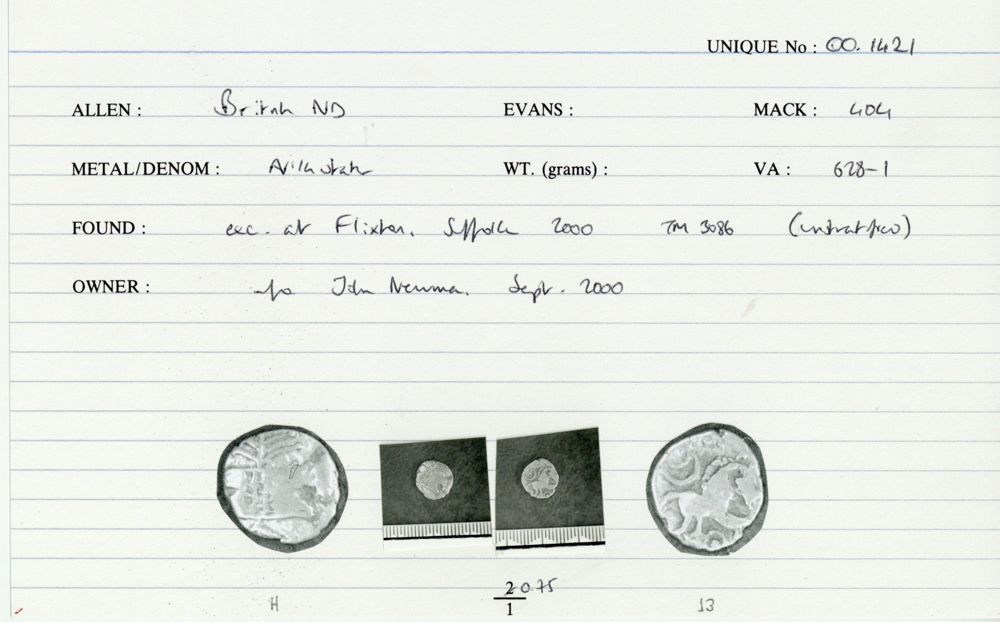 UNIQUE No : 00.1421
ALLEN : British ND EVANS : MACK : 404
METAL/DENOM : WT. (grams) : VA : 628-1
FOUND : exc. at Flixton, Suffolk 2000 TM 3086
OWNER : John Newman, Sept. 2000
2 0.75
1
H
13